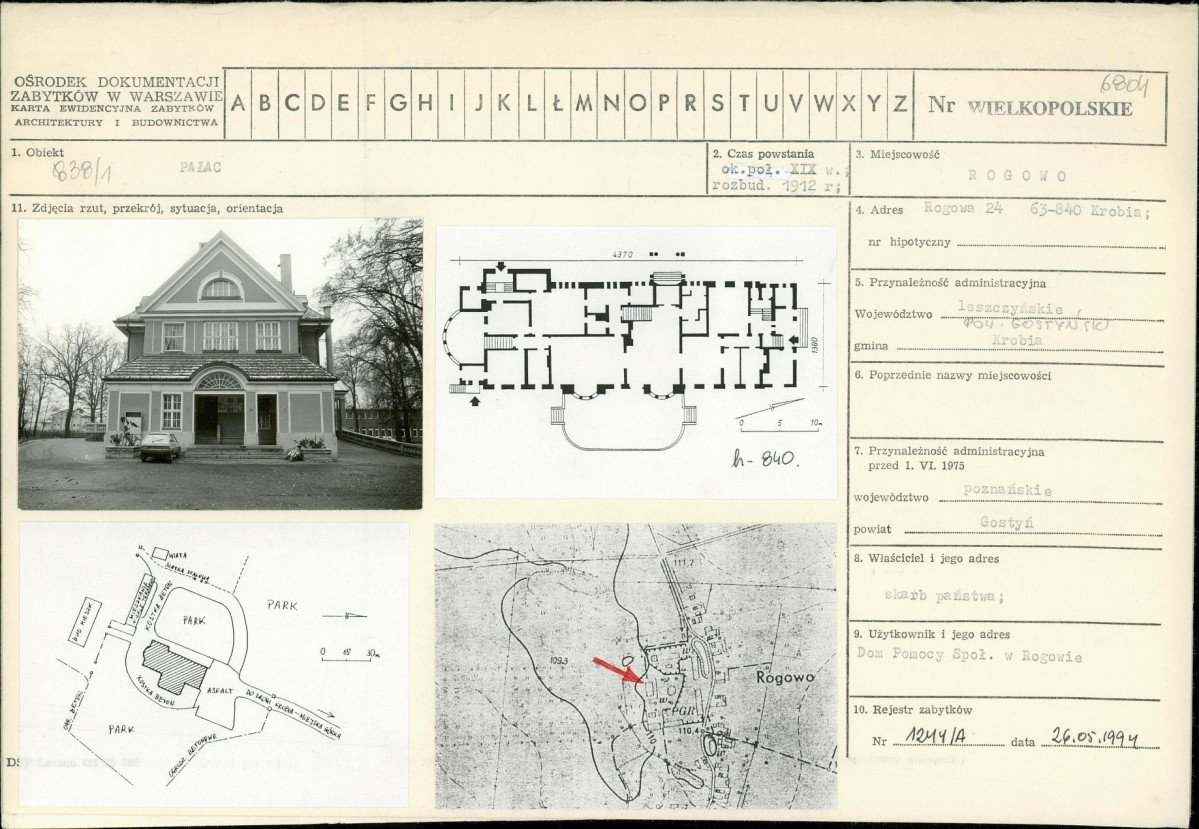 OŚRODEK DOKUMENTACJI
ZABYTKÓW W WARSZAWIE
KARTA EWIDENCYJNA ZABYTKÓW
ARCHITEKTURY I BUDOWNICTWA
A B C D E F G H I J K L Ł M N O P R S T U V W X Y Z
6804
Nr WIELKOPOLSKIE
1. Obiekt
838/1 PAŁAC
2. Czas powstania
ok.poł. XIX w.;
rozbud. 1912 r;
3. Miejscowość
ROGOWO
11. Zdjęcia rzut, przekrój, sytuacja, orientacja
4. Adres Rogowa 24 63-840 Krobia;
nr hipotyczny
5. Przynależność administracyjna
Województwo leszczyńskie,
POW. GOSTYŃSKI
gmina Krobia
6. Poprzednie nazwy miejscowości
7. Przynależność administracyjna
przed 1. VI. 1975
województwo poznańskie
powiat Gostyń
8. Właściciel i jego adres
skarb państwa;
9. Użytkownik i jego adres
Dom Pomocy Społ. w Rogowie
10. Rejestr zabytków
Nr 1244/A data 26.05.1994
4370
1380
0 5 10m
h-840.
WIATA
SIATKA STALOWA
PARK
KOSTKA BETON.
PARK
BUD. MIESZK.
0 15 30m
KOSTKA BETON.
ASFALT
DO DROGI KROBIA-MIEJSKA GÓRKA
OGR. BETON.
PARK
OGRODZ. BETONOWE
111,7
109.3
Rogowo
PGR
110.4
110